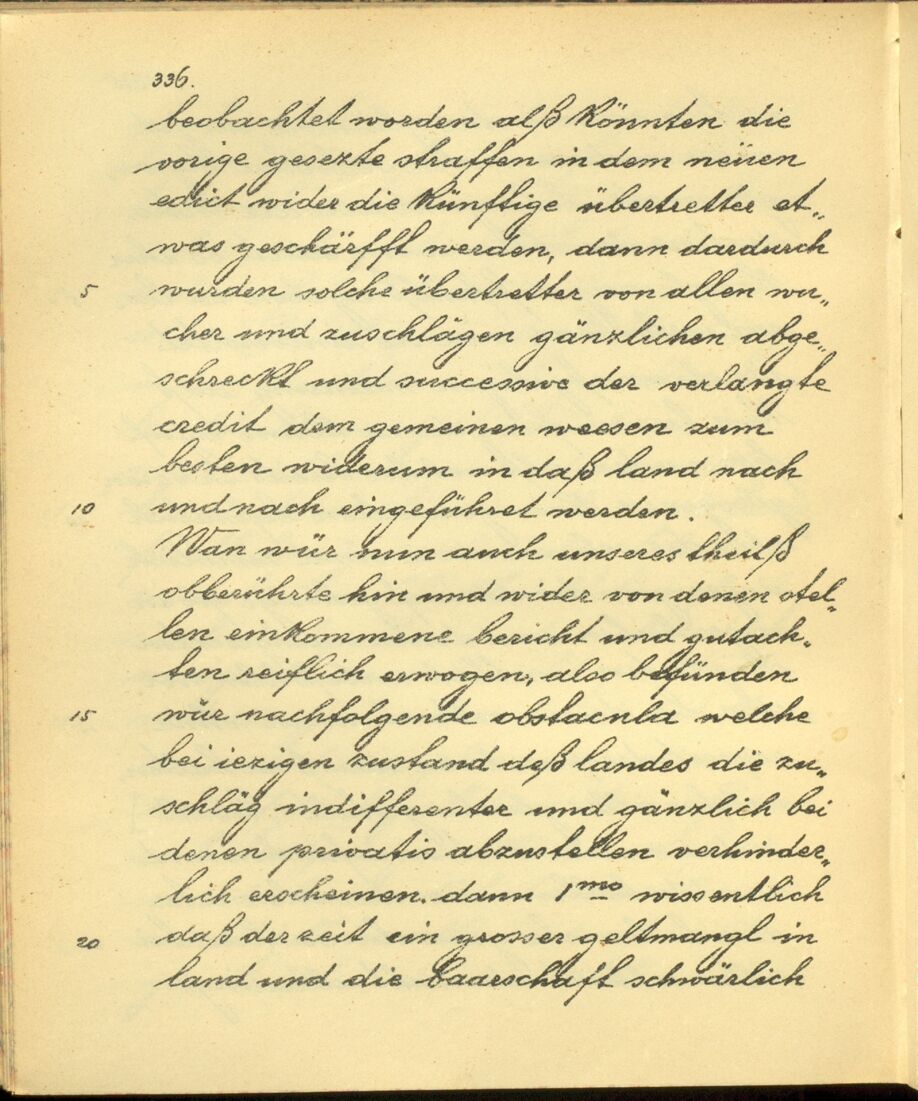 336.
beobachtet worden alß könnten die
vorige gesezte straffen in dem neüen
edict wider die künfftige übertretter et„
was geschärfft werden, dann dardurch
5 wurden solche übertretter von allen wu„
cher und zuschlägen gänzlichen abge„
schreckt und successive der verlangte
credit dem gemeinen weesen zum
besten widerum in daß land nach
10 und nach eingeführet werden.
Wan wür nun auch unseres theilß
obberührte hin und wider von denen stel„
len einkommene bericht und gutach„
ten reiflich erwogen, also befünden
15 wür nachfolgende obstacula welche
bei iezigen zustand deß landes die zu„
schläg indifferenter und gänzlich bei
denen privatis abzustellen verhinder„
lich erscheinen. dann 1mo wissentlich
20 daß der zeit ein grosser geltmangl in
land und die baarschaft schwärlich